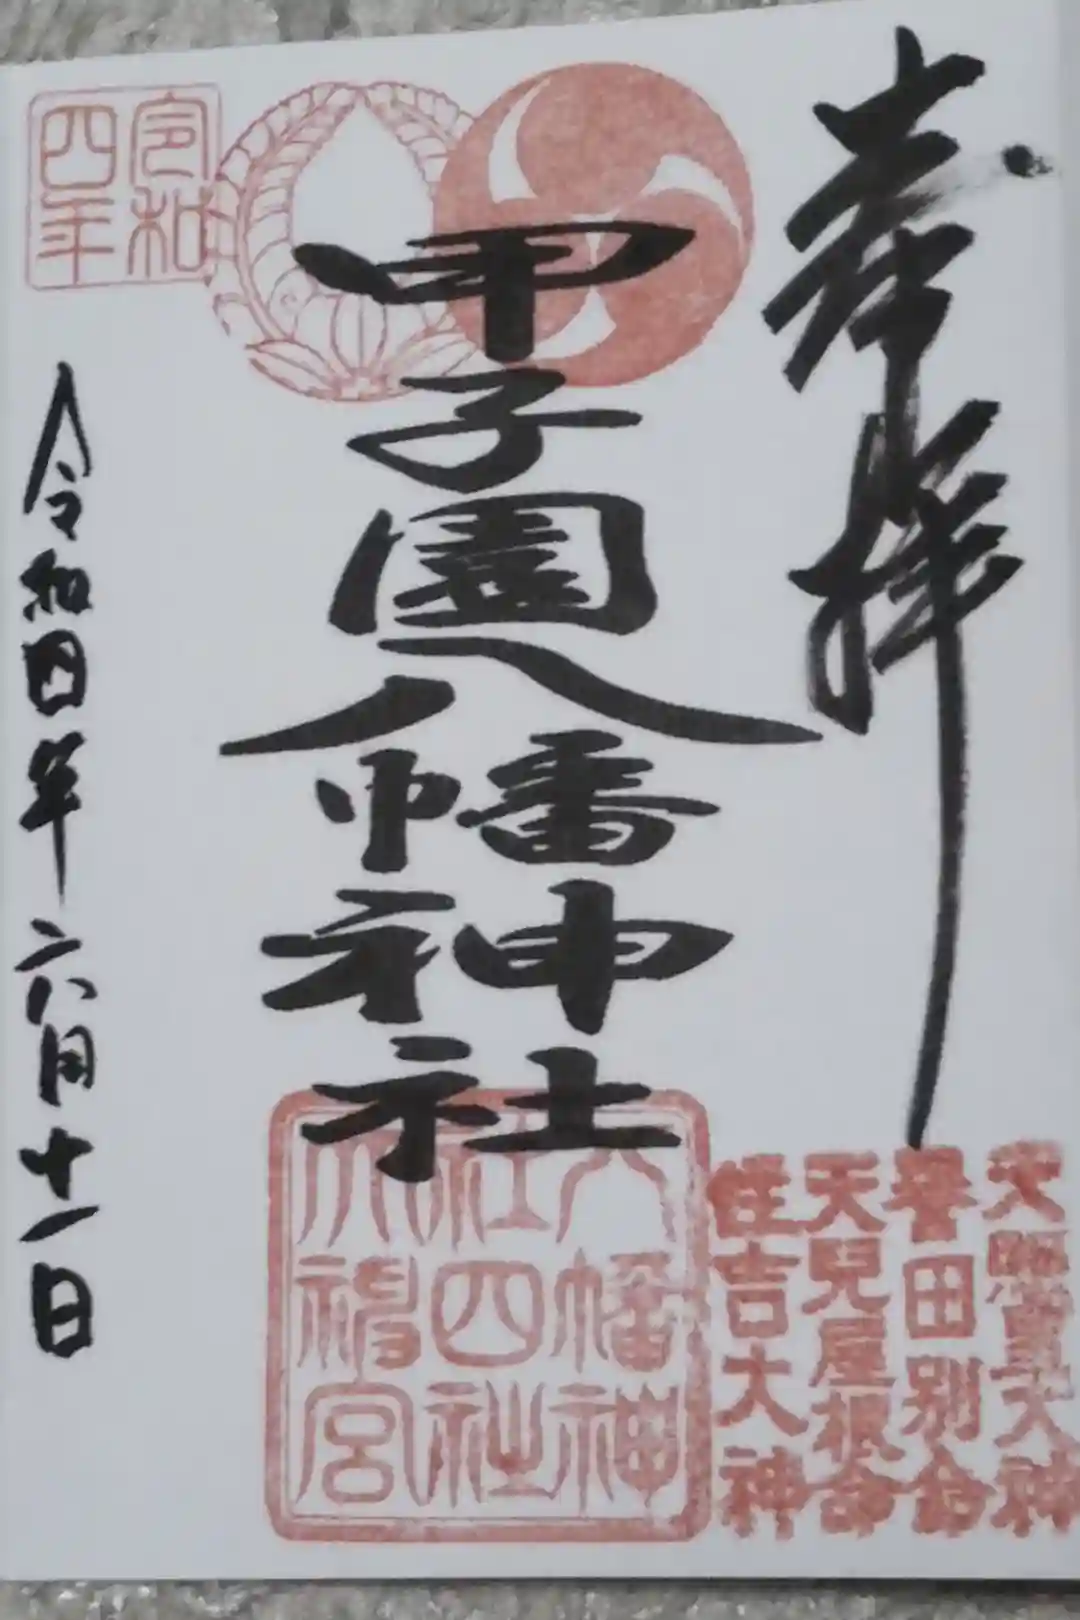 奉拝
天照皇大神
誉田別命
天兒屋根命
住吉大神
甲子園八幡神社
八幡神
社四社
大神宮
令和四年
令和四年六月十一日